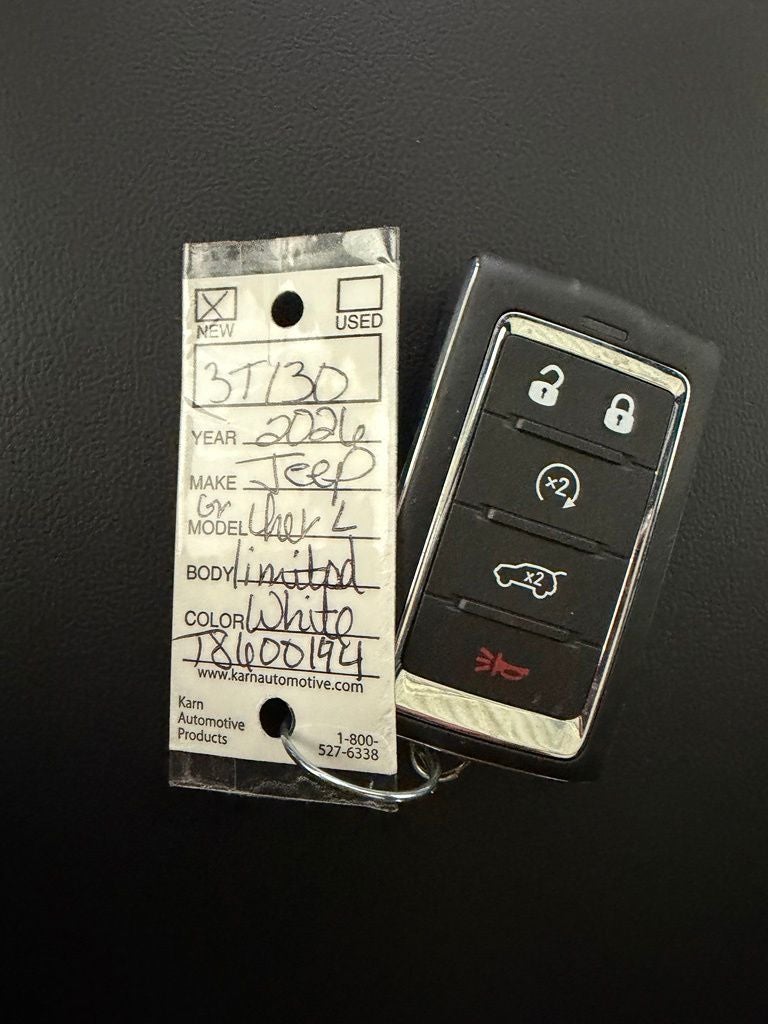 NEW USED
3T130
YEAR 2026
MAKE Jeep
MODEL Gr Cher L
BODY Limited
COLOR White
T8600194
www.karnautomotive.com
Karn
Automotive
Products
1-800-
527-6338
x2
x2